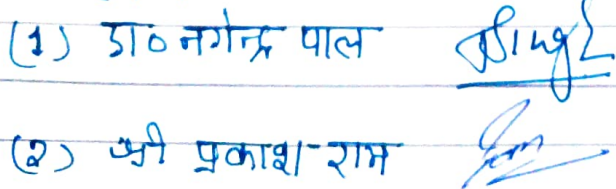 (1) डा० नगेन्द्र पाल
(2) श्री प्रकाश राम